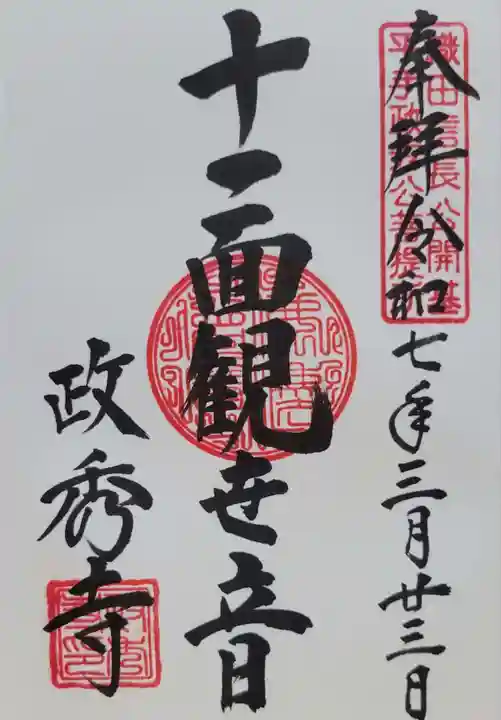 奉拝令和七年三月廿三日
織田信長公開基
平手政秀公菩提
十一面観世音
政秀寺